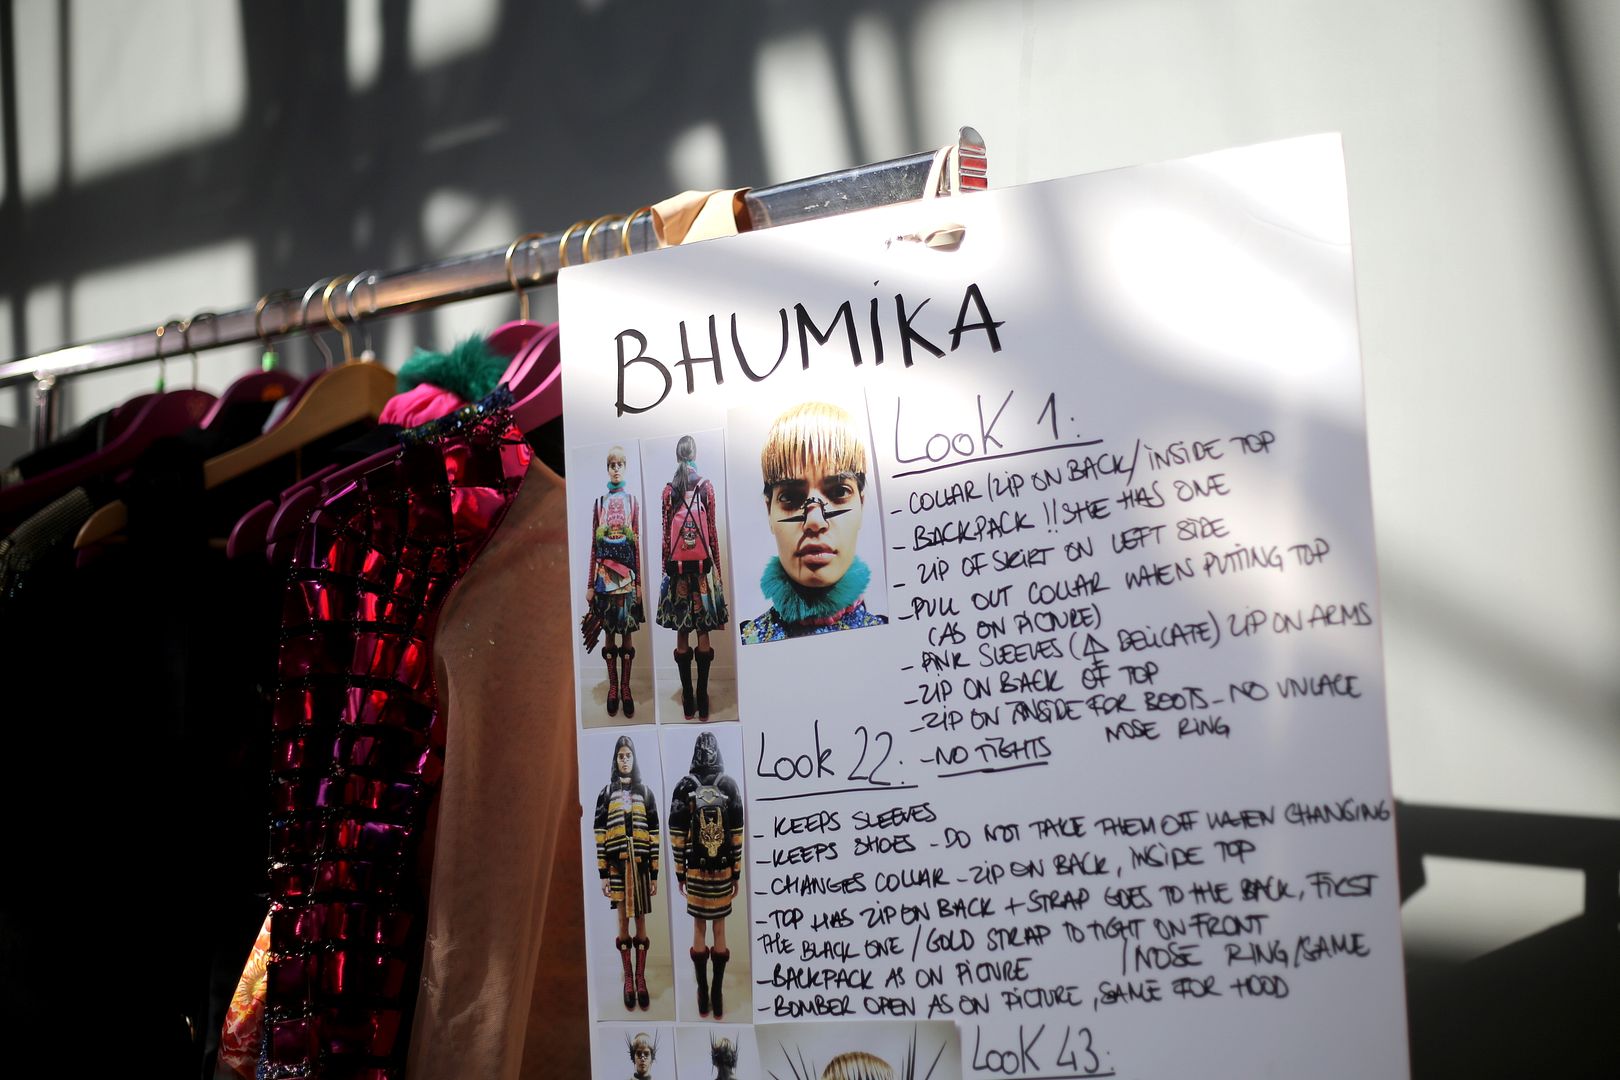 BHUMIKA
Look 1:
- COLLAR / ZIP ON BACK / INSIDE TOP
- BACKPACK !! SHE HAS ONE
- ZIP OF SKIRT ON LEFT SIDE
- PULL OUT COLLAR WHEN PUTTING TOP
(AS ON PICTURE)
- PINK SLEEVES (⚠ DELICATE) ZIP ON ARMS
- ZIP ON BACK OF TOP
- ZIP ON INSIDE FOR BOOTS - NO UNLACE
- NO TIGHTS NOSE RING
Look 22:
- KEEPS SLEEVES
- KEEPS SHOES - DO NOT TAKE THEM OFF WHEN CHANGING
- CHANGES COLLAR - ZIP ON BACK, INSIDE TOP
- TOP HAS ZIP ON BACK + STRAP GOES TO THE BACK, FIRST
THE BLACK ONE / GOLD STRAP TO TIGHT ON FRONT
- BACKPACK AS ON PICTURE / NOSE RING / SAME
- BOMBER OPEN AS ON PICTURE, SAME FOR HOOD
Look 43: